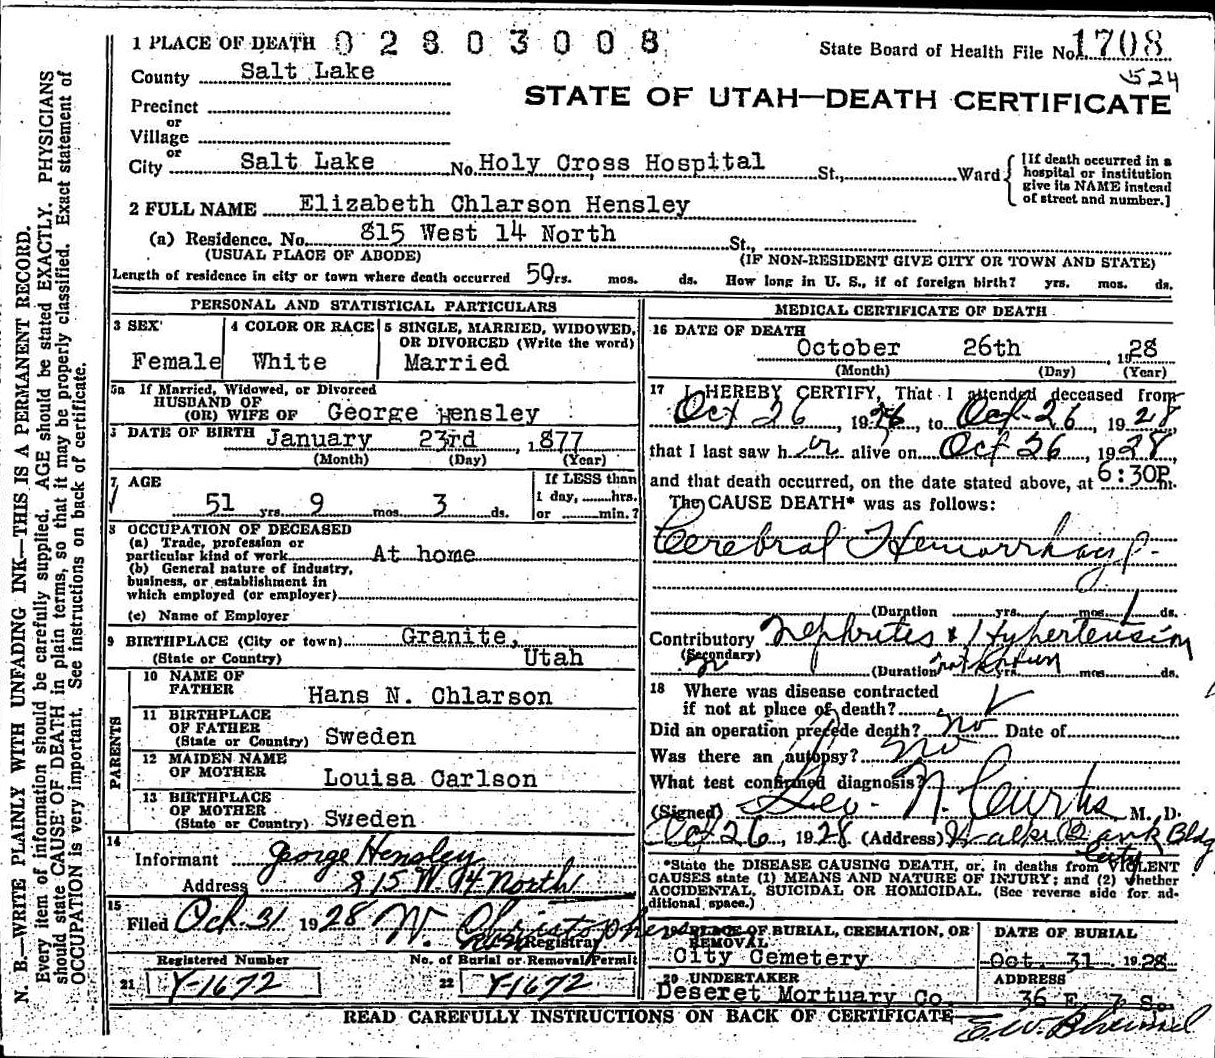 1 PLACE OF DEATH 02803008 State Board of Health File No. 1708
County Salt Lake 524
STATE OF UTAH—DEATH CERTIFICATE
Precinct
or
Village
or
City Salt Lake No. Holy Cross Hospital St., Ward { [If death occurred in a hospital or institution give its NAME instead of street and number.]
2 FULL NAME Elizabeth Chlarson Hensley
(a) Residence. No. 815 West 14 North St.,
(USUAL PLACE OF ABODE) (IF NON-RESIDENT GIVE CITY OR TOWN AND STATE)
Length of residence in city or town where death occurred 50 yrs. mos. ds. How long in U. S., if of foreign birth? yrs. mos. ds.
PERSONAL AND STATISTICAL PARTICULARS
3 SEX Female
4 COLOR OR RACE White
5 SINGLE, MARRIED, WIDOWED, OR DIVORCED (Write the word) Married
5a If Married, Widowed, or Divorced
HUSBAND OF
(OR) WIFE OF George Hensley
DATE OF BIRTH January 23rd, 1877
(Month) (Day) (Year)
7 AGE 51 yrs. 9 mos. 3 ds.
If LESS than
1 day, hrs.
or min.?
8 OCCUPATION OF DECEASED
(a) Trade, profession or
particular kind of work At home
(b) General nature of industry,
business, or establishment in
which employed (or employer)
(c) Name of Employer
9 BIRTHPLACE (City or town) Granite,
(State or Country) Utah
PARENTS
10 NAME OF
FATHER Hans N. Chlarson
11 BIRTHPLACE
OF FATHER
(State or Country) Sweden
12 MAIDEN NAME
OF MOTHER Louisa Carlson
13 BIRTHPLACE
OF MOTHER
(State or Country) Sweden
14
Informant George Hensley
Address 815 W. 14 North
15
Filed Oct. 31 1928 W. Christophers
Registrar
Registered Number No. of Burial or Removal Permit
21 Y-1672 22 Y-1672
MEDICAL CERTIFICATE OF DEATH
16 DATE OF DEATH
October 26th, 1928
(Month) (Day) (Year)
17 I HEREBY CERTIFY, That I attended deceased from
Oct 26, 1928, to Oct. 26, 1928,
that I last saw her alive on Oct 26, 1928,
and that death occurred, on the date stated above, at 6:30P.m.
The CAUSE DEATH* was as follows:
Cerebral Hemorrhage
(Duration yrs. mos. 1 ds.
Contributory Nephrites & Hypertension
(Secondary) (Duration not known yrs. mos. ds.
18 Where was disease contracted
if not at place of death?
Did an operation precede death? no Date of
Was there an autopsy? No
What test confirmed diagnosis?
(Signed) Geo. N. Curtis M. D.
Oct 26, 1928 (Address) Walker Bank Bldg
City
*State the DISEASE CAUSING DEATH, or, in deaths from VIOLENT
CAUSES state (1) MEANS AND NATURE OF INJURY; and (2) whether
ACCIDENTAL, SUICIDAL OR HOMICIDAL. (See reverse side for ad-
ditional space.)
19 PLACE OF BURIAL, CREMATION, OR
REMOVAL
City Cemetery
DATE OF BURIAL
Oct. 31. 1928
20 UNDERTAKER
Deseret Mortuary Co.
ADDRESS
36 E. 7 So.
READ CAREFULLY INSTRUCTIONS ON BACK OF CERTIFICATE
N. B.—WRITE PLAINLY WITH UNFADING INK—THIS IS A PERMANENT RECORD.
Every item of information should be carefully supplied. AGE should be stated EXACTLY. PHYSICIANS
should state CAUSE OF DEATH in plain terms, so that it may be properly classified. Exact statement of
OCCUPATION is very important. See instructions on back of certificate.